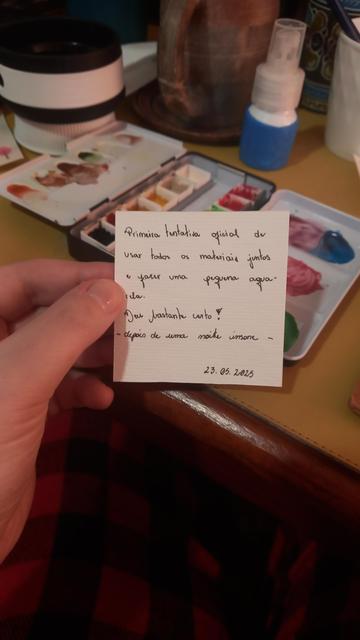 Primeira tentativa oficial de
usar todos os materiais juntos
e fazer uma pequena aqua-
rela.
Deu bastante certo!
- depois de uma noite insone -
23.05.2025